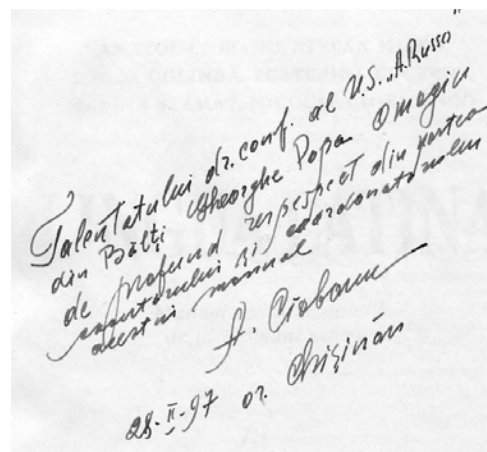 Talentatului dr. conf. al U.S. „A.Russo”
din Bălți Gheorghe Popa Omagiu
de profund respect din partea
și coordonatorului
acestui manual
A. Ciobanu
28-II-97 or. Chișinău